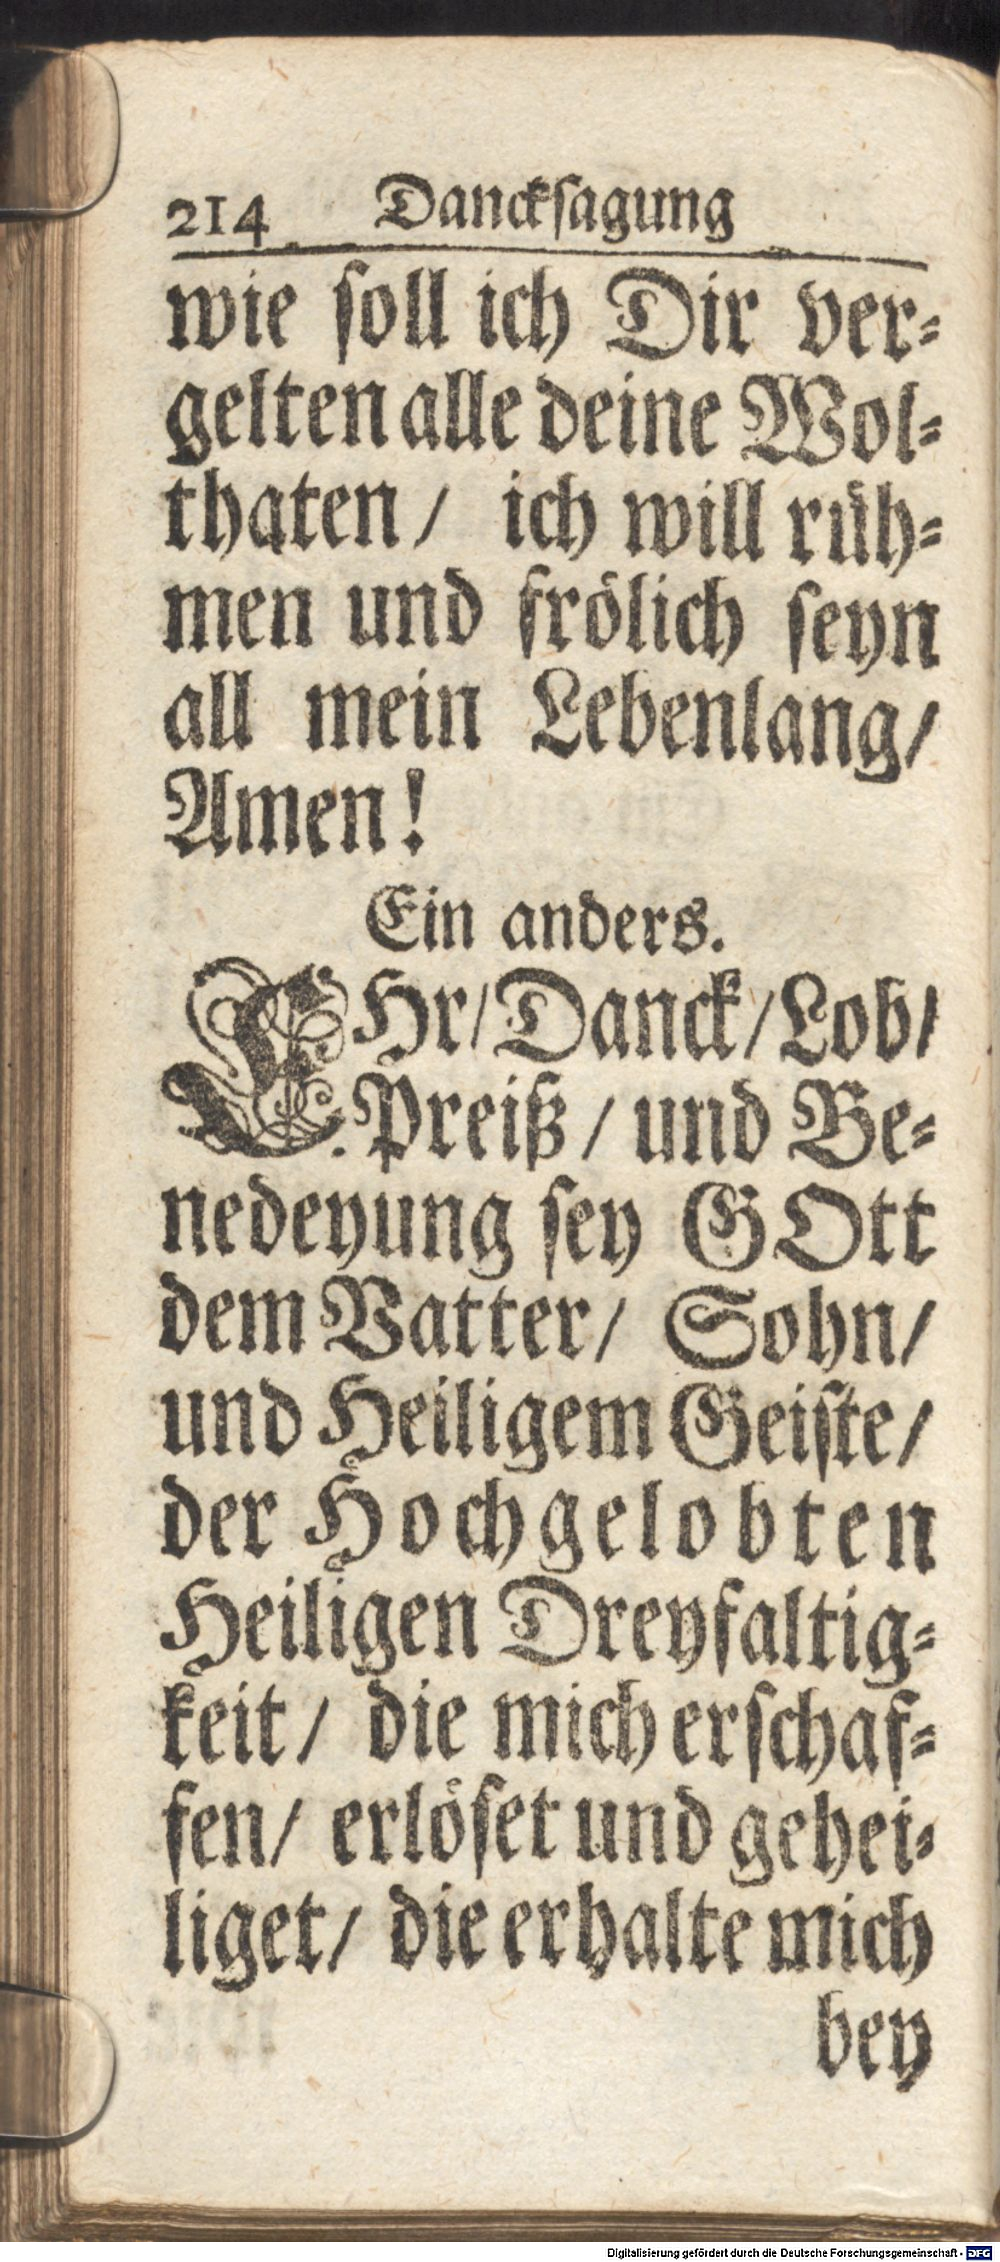 214 Danckſagung
wie ſoll ich Dir ver⸗
gelten alle deine Wol⸗
thaten/ ich will rüh⸗
men und frölich ſeyn
all mein Lebenlang/
Amen!
Ein anders.
EHr/ Danck/ Lob/
Preiß/ und Be⸗
nedeyung ſey GOtt
dem Vatter/ Sohn/
und Heiligem Geiſte/
der Hochgelobten
Heiligen Dreyfaltig⸗
keit/ die mich erſchaf⸗
fen/ erlöſet und gehei⸗
liget/ die erhalte mich
bey
Digitalisierung gefördert durch die Deutsche Forschungsgemeinschaft - DFG